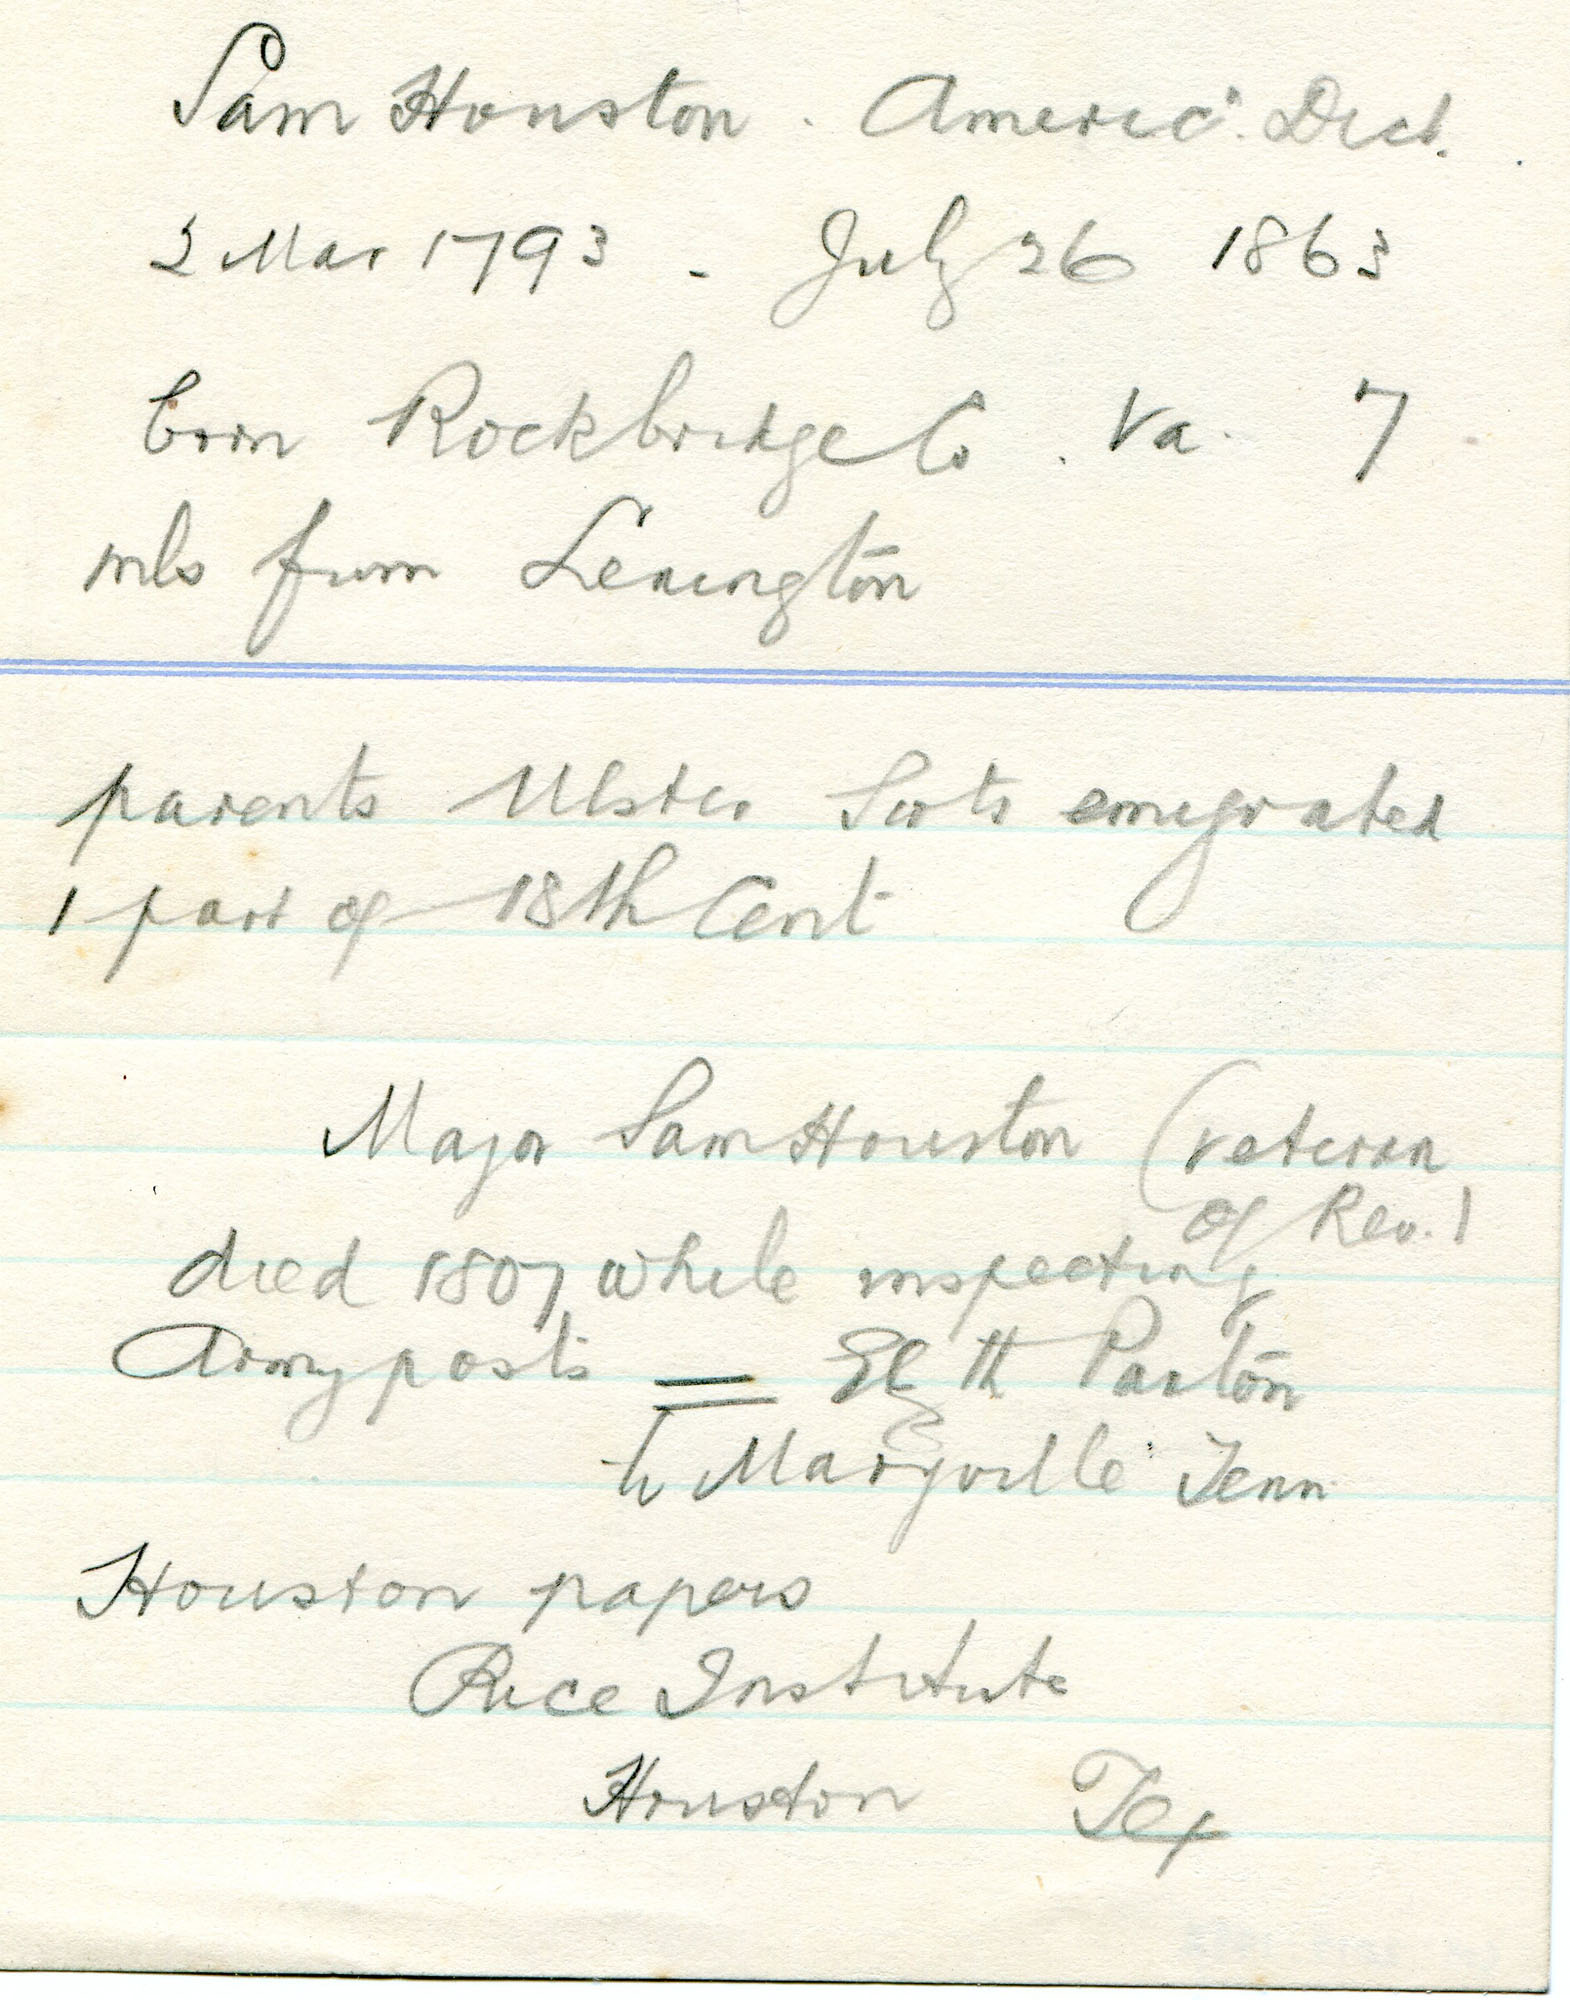 Sam Houston. Americ. Dict.
2 Mar 1793 - July 26 1863
born Rockbridge Co. Va. 7
mls from Lexington
parents Ulster Scots emigrated
1 part of 18th Cent
Major Sam Houston (veteran
of Rev.)
died 1807 while inspecting
Army posts = Elizth Paxton
to Maryville Tenn
Houston papers
Rice Institute
Houston Tex